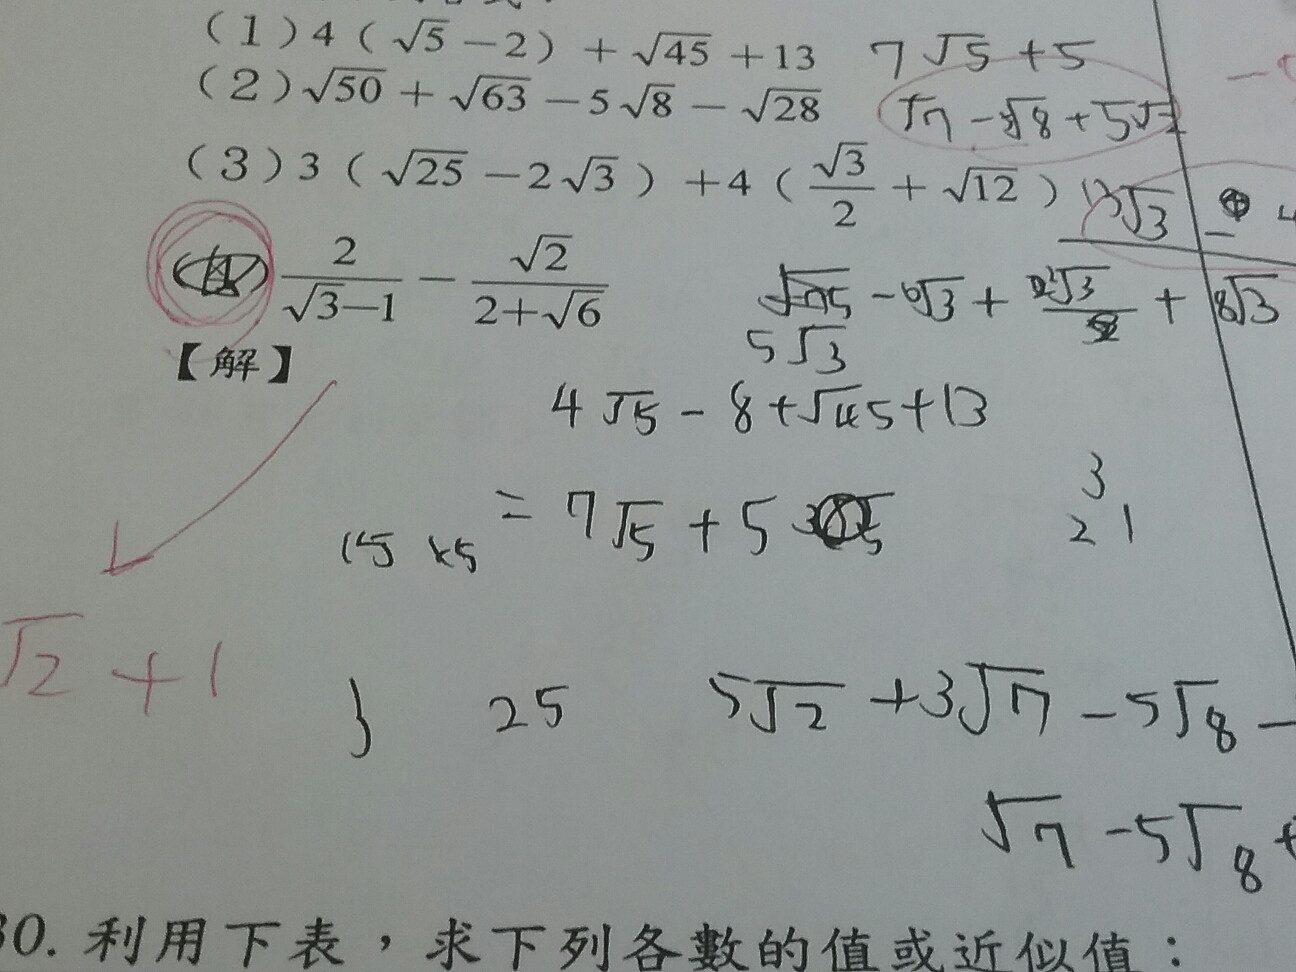 (1) 4(√5-2)+√45+13 7√5+5
(2) √50+√63-5√8-√28 √7-5√8+5√2
(3) 3(√25-2√3)+4(√3/2+√12) √3
2/(√3-1) - √2/(2+√6) √75-6√3+ √3 + 8√3
【解】 5√3
4√5-8+√45+13
3
=7√5+5
21
15 x5
√2+1
25 5√2+3√7-5√8-
√7-5√8+
30. 利用下表，求下列各數的值或近似值：